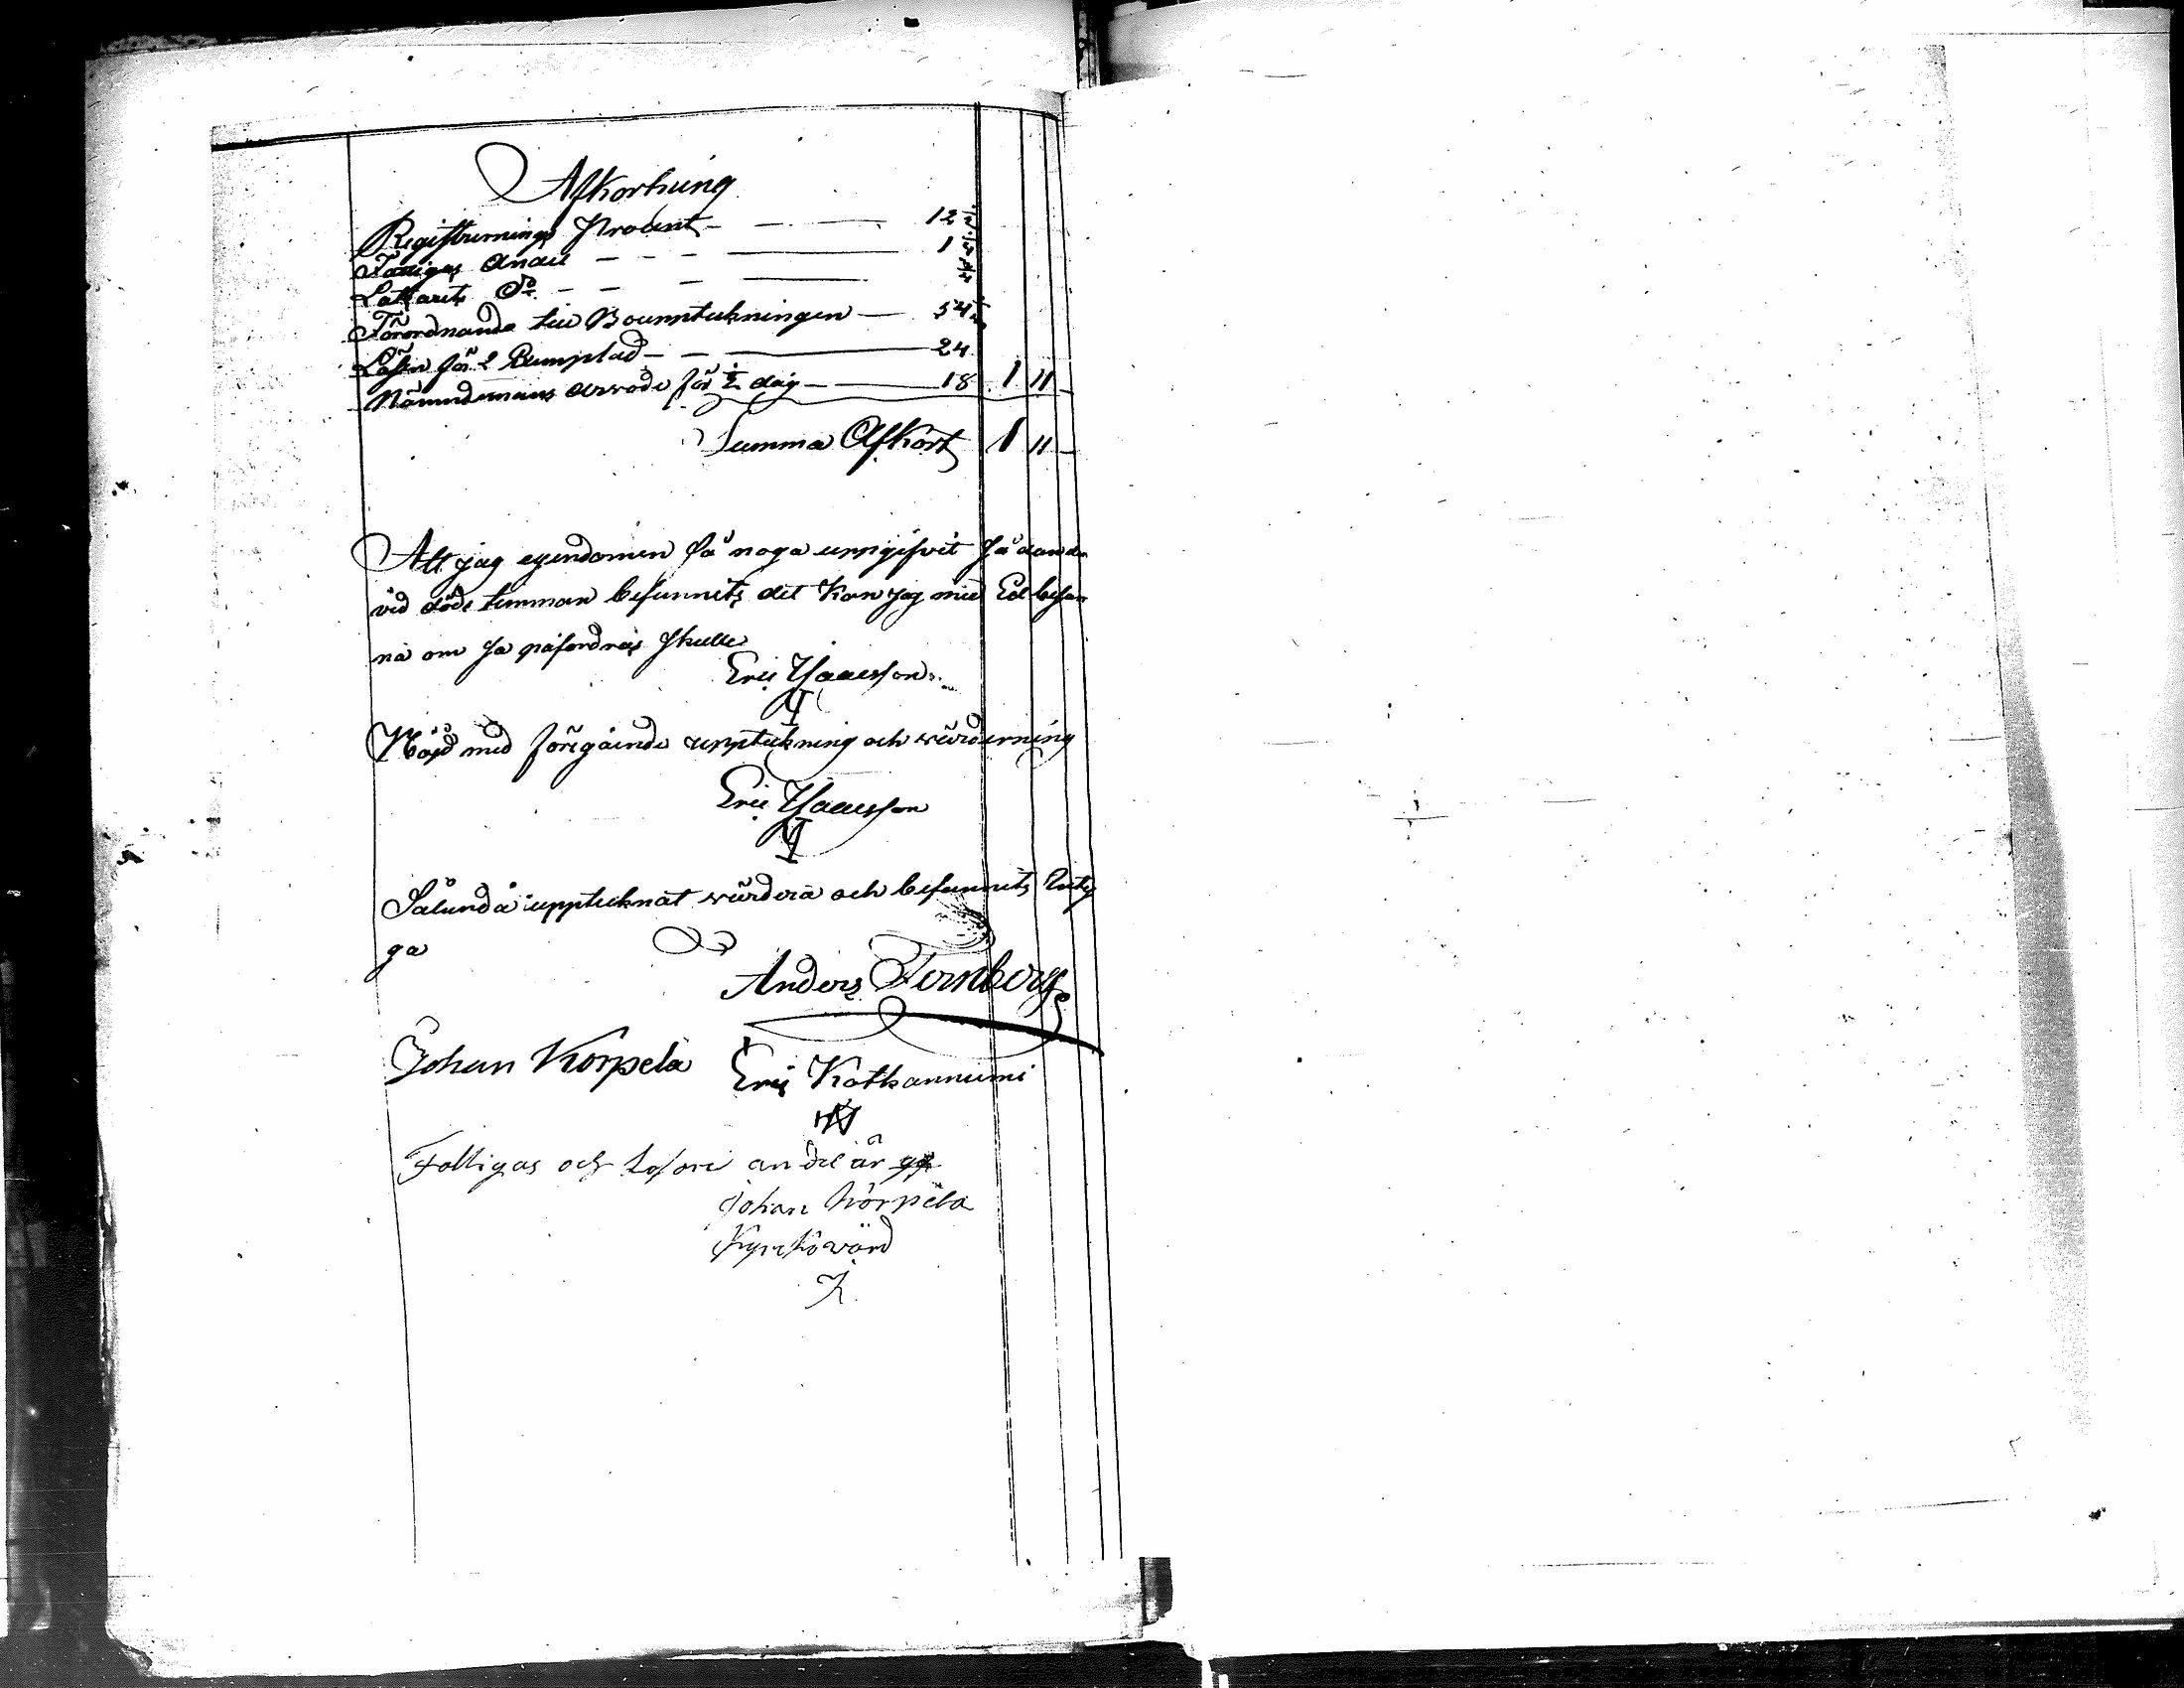 Afkortning
Registrerings Procent - - - 12
Fattigas Andel - - - 1
Lassarets do - - -
Förordnande till Bouppteckningen - 54
Lösen för 2 - - 24
Nämndemans arvode för ½ dag - 18 1 11 -
Summa Afkort 1 11 -
Att jag egendomen så noga uppgifvit sådan den
vid döds timman befunnits det kan jag med Ed besan
na om så påfordras skulle
Eric Isacsson
Nöjd med föregående uppteckning och värdering
Eric Isacsson
Sålunda upptecknat värderat och befunnits Inty
ga
Anders Fernberg
Johan Korpela Eric Katkannumi
Fattigas och andel är
Johan Korpela
Kyrkovärd